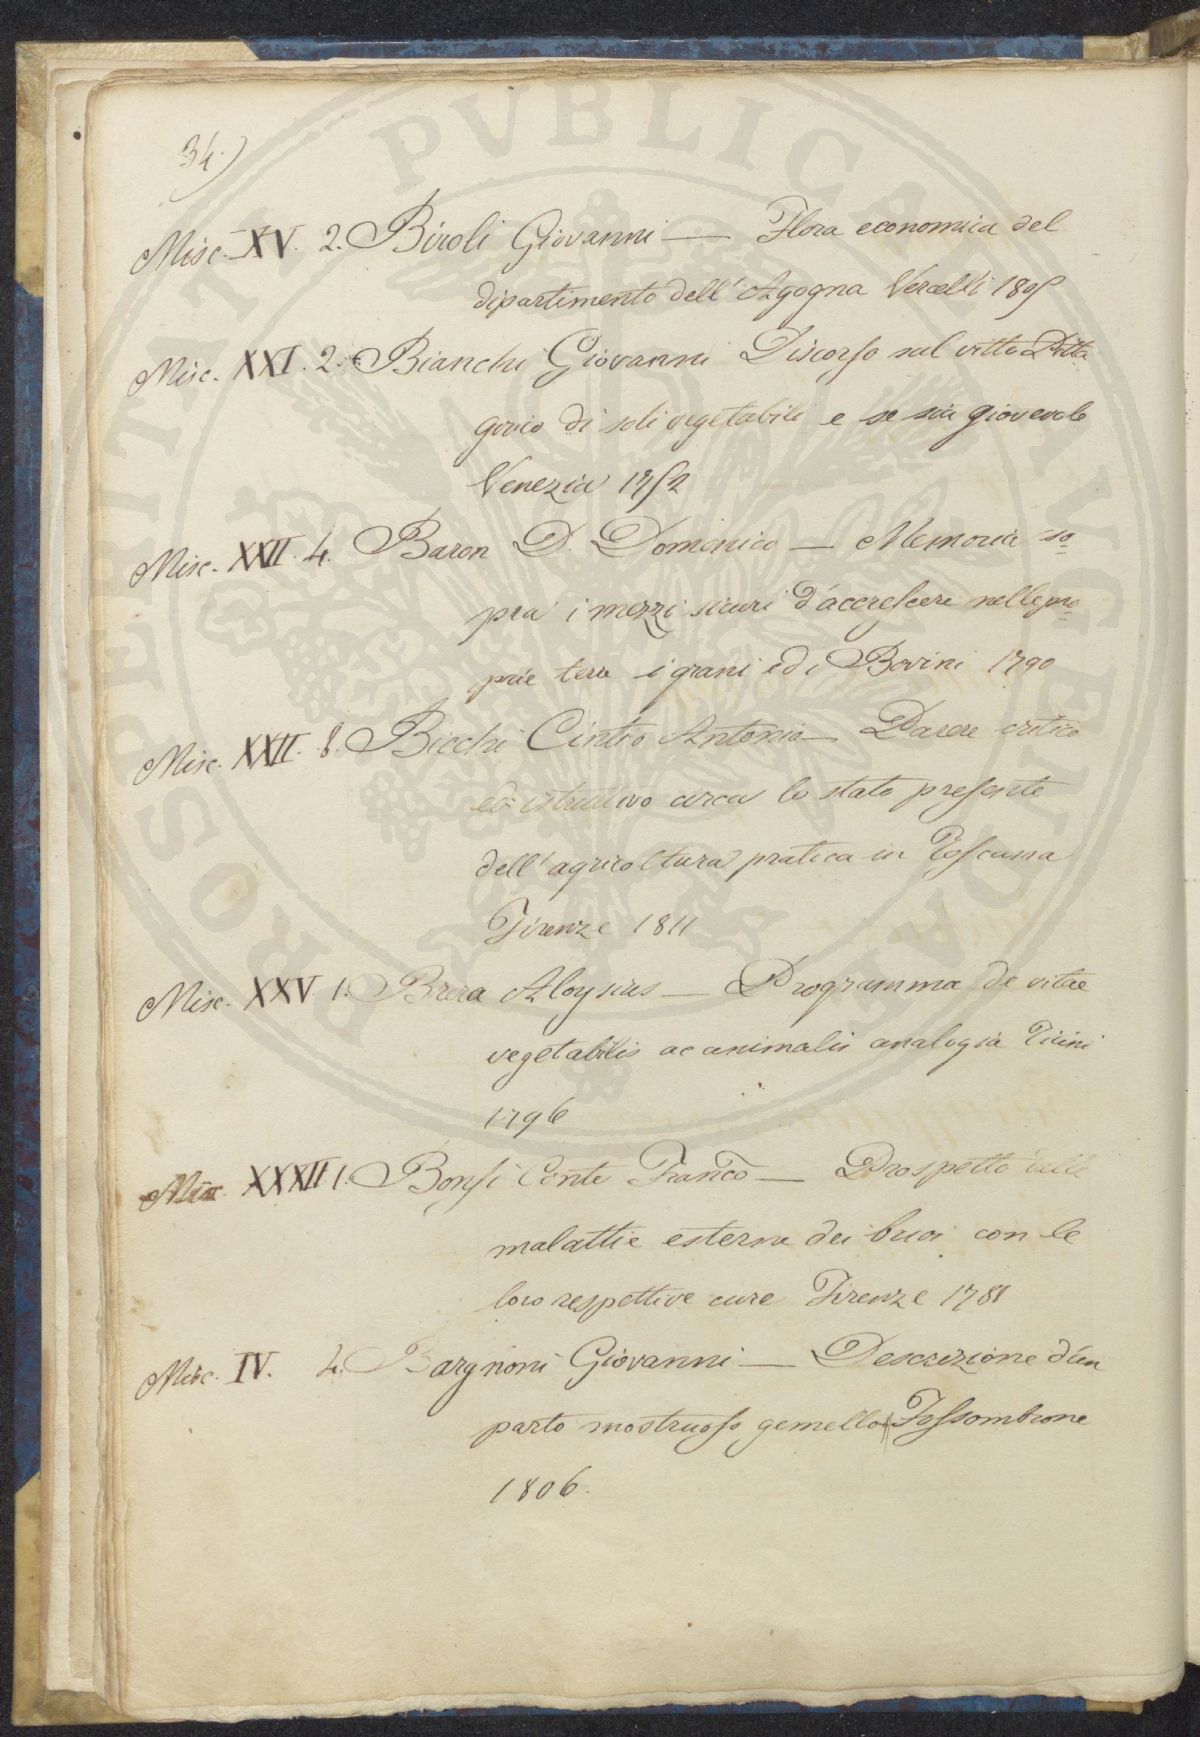 34.)
Misc. XV. 2. Biroli Giovanni — Flora economica del
dipartimento dell'Agogna Vercelli 1805
Misc. XXI. 2. Bianchi Giovanni Discorso sul vitto Pitta
gorico di soli vegetabili e se sia giovevole
Venezia 1752
Misc. XXII. 4. Baron D. Domenico — Memoria so
pra i mezzi sicuri d'accrescere nelle pro
prie terre i grani ed i Bovini 1790
Misc. XXII. 8. Bicchi Cintio Antonio — Parere critico
ed istruttivo circa lo stato presente
dell'agricoltura pratica in Toscana
Firenze 1811
Misc. XXV. 1. Brera Aloysius — Programma de vitae
vegetabilis ac animalis analogia Ticini
1796
Misc. XXXII 1. Bonsi Conte Franco — Prospetto delle
malattie esterne dei buoi con le
loro respettive cure Firenze 1781
Misc. IV. 4. Bargnoni Giovanni — Descrizione d'un
parto mostruoso gemello Fossombrone
1806.
PROSPERITATI PVBLICAE AVGENDAE